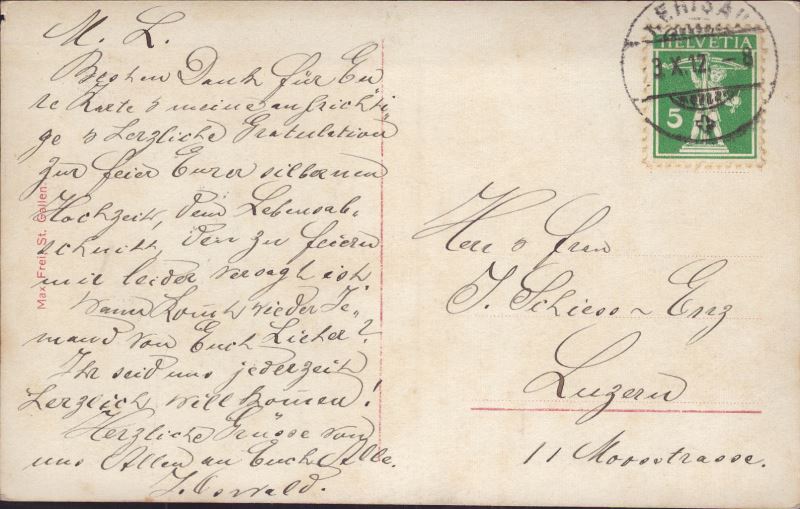 M. L.
Besten Dank für Eu
re Karte & meine aufrichti
ge & herzliche Gratulation
zur feier Eurer silbernen
Hochzeit, dem Lebensab„
schnitt, den zu feiern
mir leider versagt ist
Wann komt wieder Je„
mand von Euch hieher?
Ihr seid uns jederzeit
herzlich willkomen!
Herzliche Grüsse von
uns Allen an Euch Alle.
J. Oswald.
Max Frei, St. Gallen.
HERISAU
3.X.12. - 8
HELVETIA
5
Herr & Frau
J. Schiess-Enz
Luzern
11 Moosstrasse.